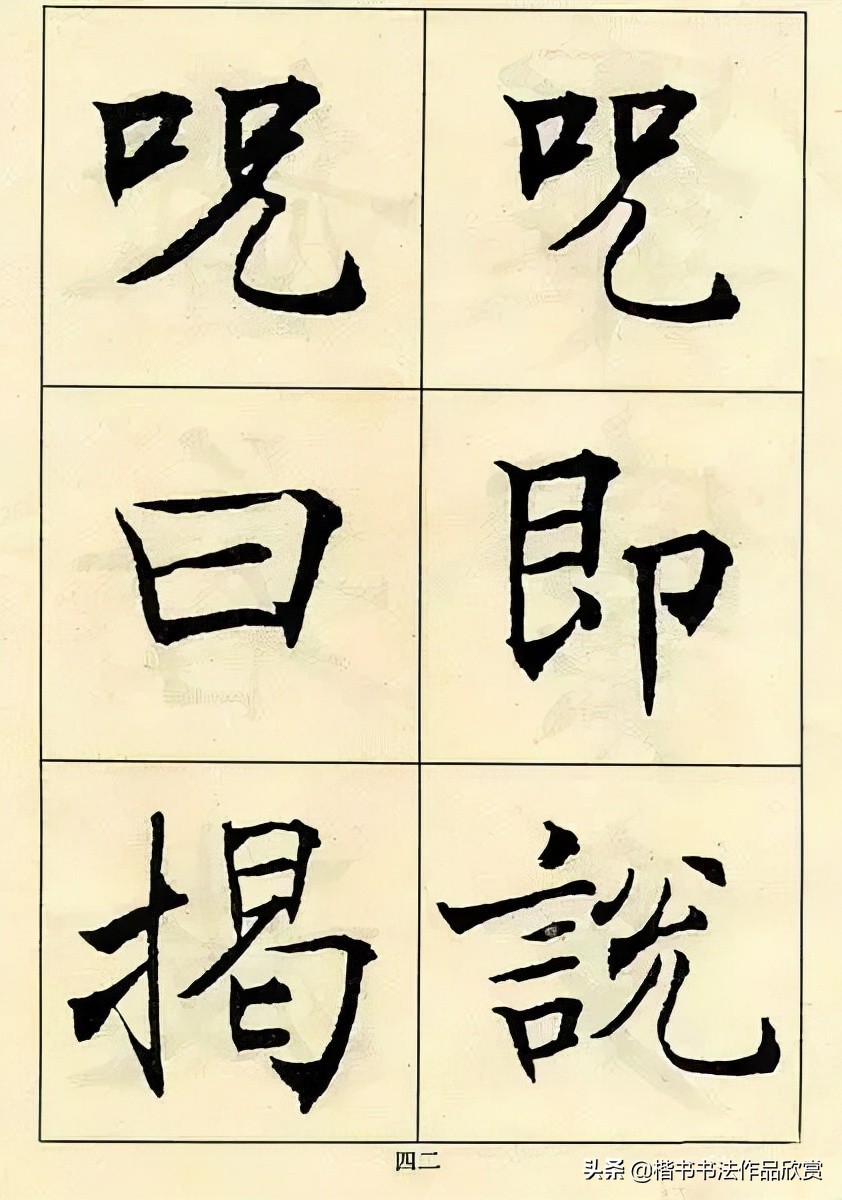 咒即說
咒曰揭
四二
头条 @楷书书法作品欣赏